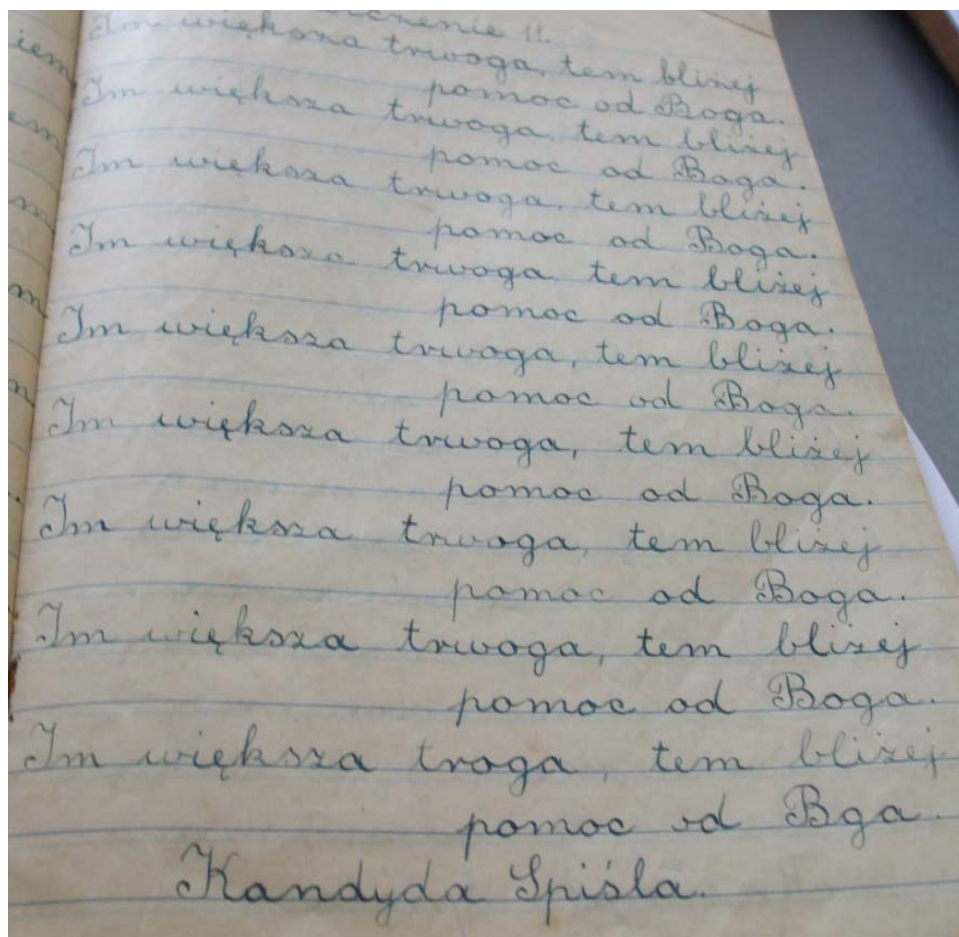 Ćwiczenie 11.
Im większa trwoga, tem bliżej
pomoc od Boga.
Im większa trwoga, tem bliżej
pomoc od Boga.
Im większa trwoga, tem bliżej
pomoc od Boga.
Im większa trwoga, tem bliżej
pomoc od Boga.
Im większa trwoga, tem bliżej
pomoc od Boga.
Im większa trwoga, tem bliżej
pomoc od Boga.
Im większa trwoga, tem bliżej
pomoc od Boga.
Im większa trwoga, tem bliżej
pomoc od Boga.
Im większa troga, tem bliżej
pomoc od Bga.
Kandyda Spiśla.